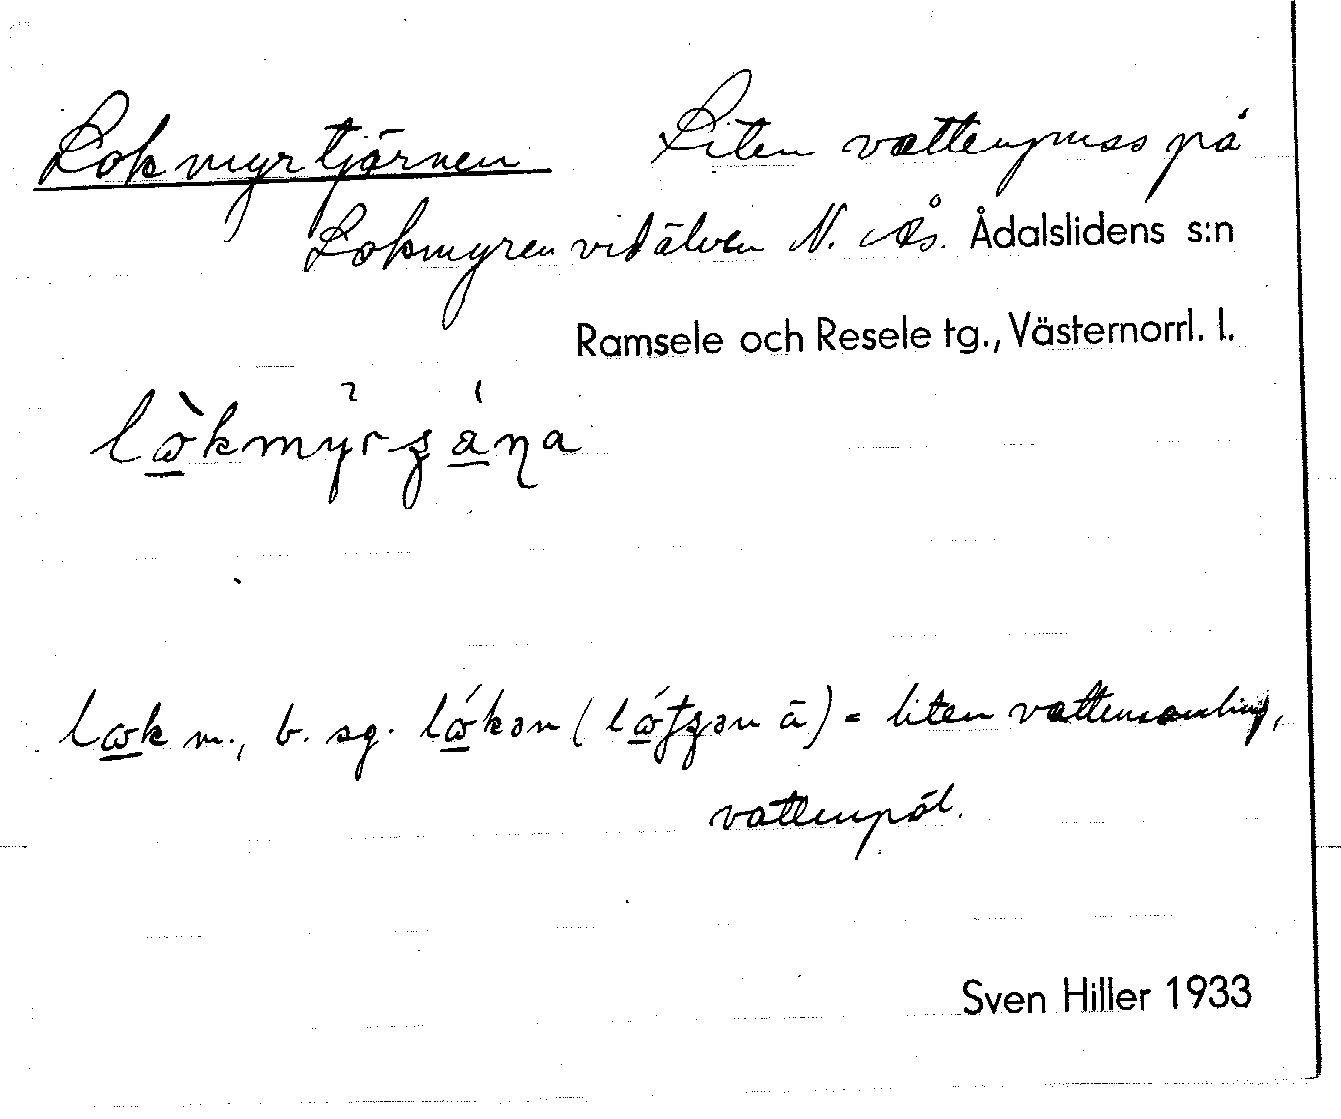 Lokmyrtjärnen Liten vattenpuss på
Lokmyren vid älven N. Ås. Ådalslidens s:n
Ramsele och Resele tg., Västernorrl. l.
m., b. sg. = liten vattensamling,
vattenpöl.
Sven Hiller 1933